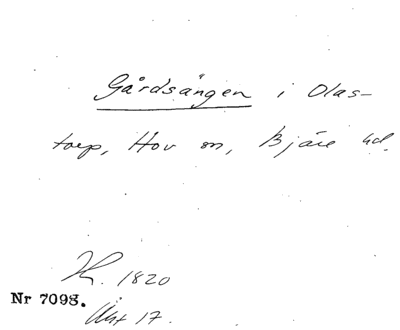 Gårdsängen i Olas-
torp, Hov sn, Bjäre hd.
H. 1820
Nr 7098.
Äht 17.